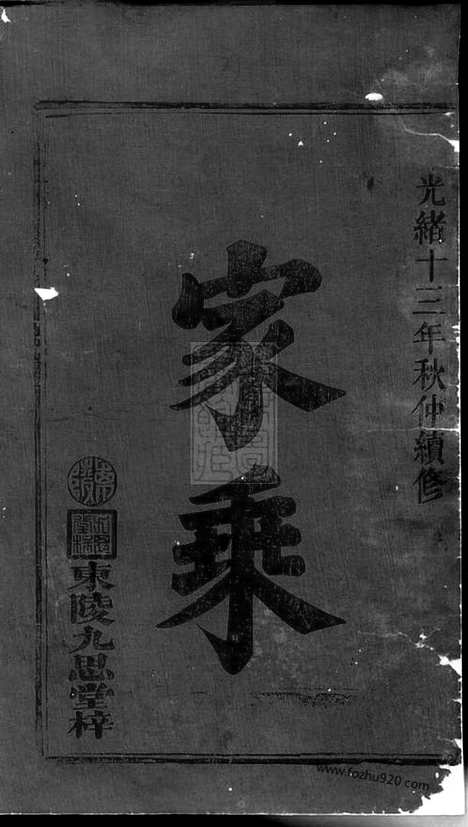 光緒十三年秋仲續修
家乘
東陵九思堂梓
www.fozhu920.com